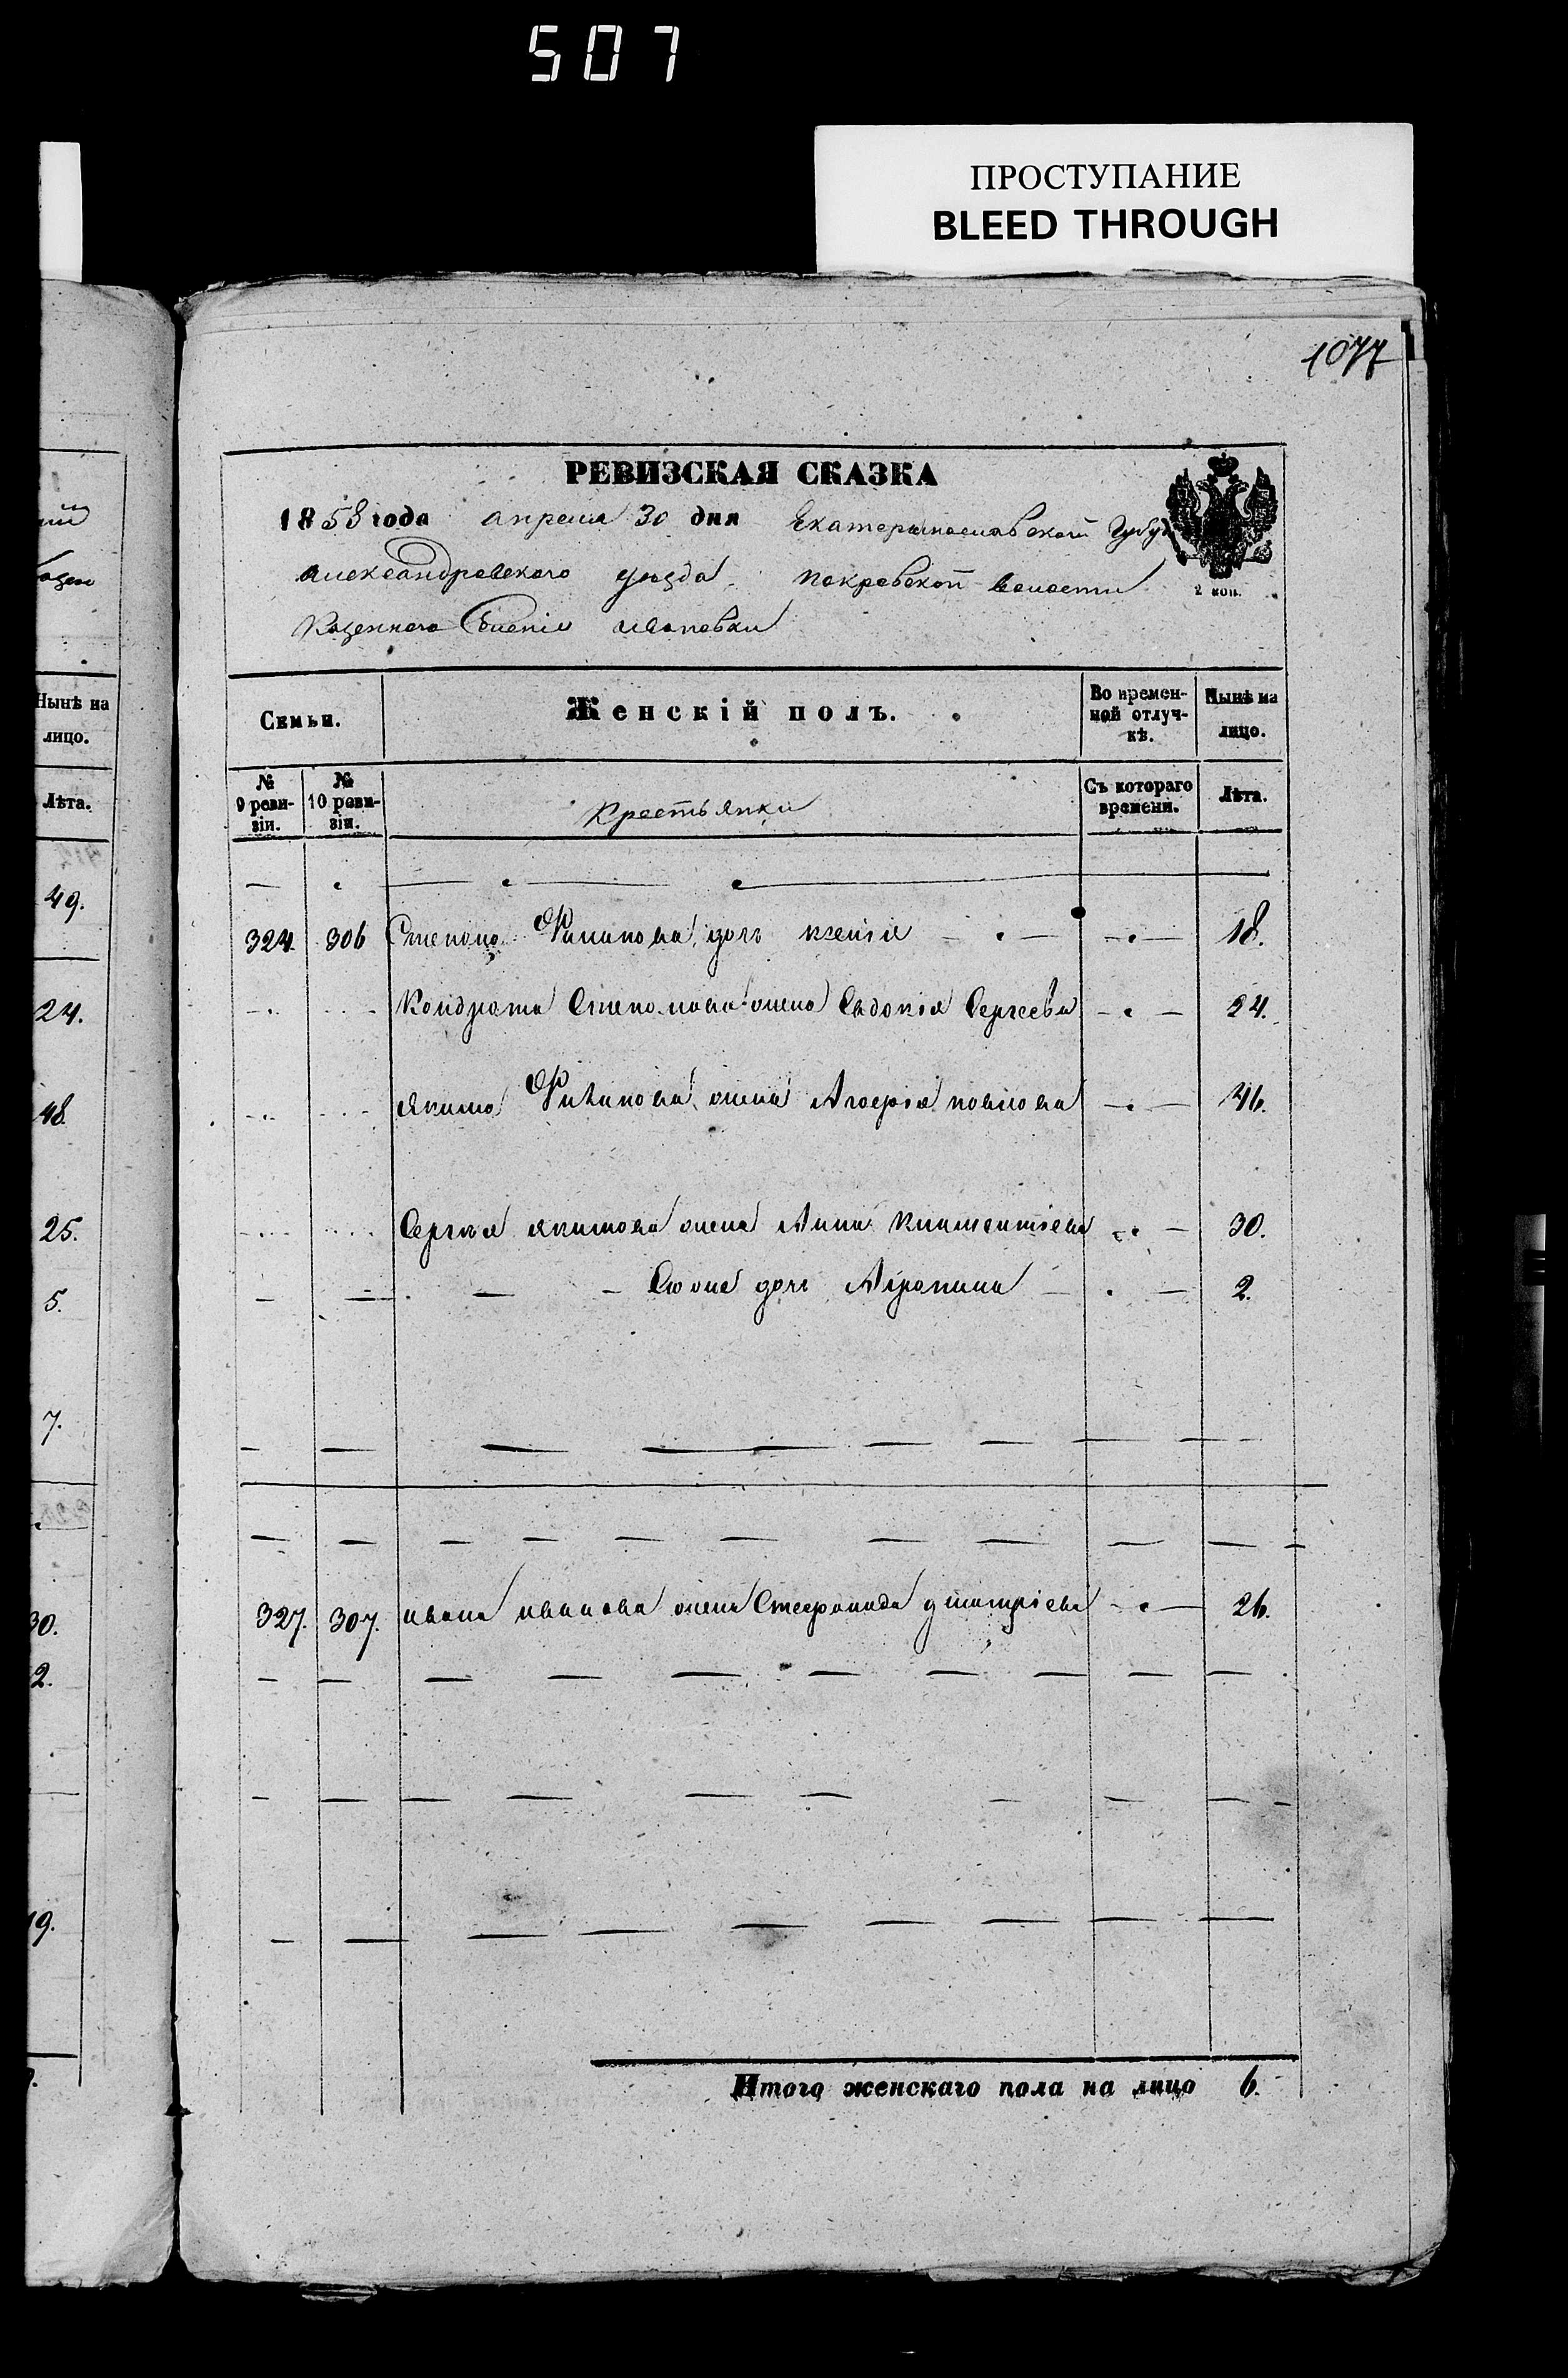 507
ПРОСТУПАНИЕ
BLEED THROUGH
1077
РЕВИЗСКАЯ СКАЗКА
1858 года апреля 30 дня Екатеринославской Губер
Александровского уезда Покровской волости
Казенного Селенія Ивановки
2 коп.
Семьи. Женскій полъ. Во времен-ной отлуч-кѣ. Нынѣ на лицо.
№ 9 реви-зіи. № 10 реви-зіи. Крестьянки Съ котораго времени. Лѣта.
324 306 Степана Филипова дочь Ксенія 18.
Кондрата Степанова жена Евдокія Сергеева 24.
Якима Филипова жена Агафія Павлова 46.
Сергея Якимова жена Анна Климентіева 30.
Ево же дочь 2.
327. 307. Ивана Иванова жена Стефанида Дмитріева 26.
Итого женскаго пола на лицо 6.
Нынѣ на
лицо.
Лѣта.
49.
24.
48.
25.
5.
7.
30.
2.
19.